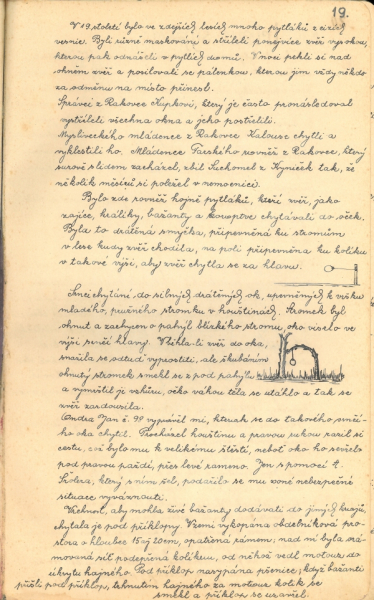 19.
V 19. století bylo ve zdejších lesích mnoho pytláků z cizích
vesnic. Byli různě maskováni a stříleli ponejvíce zvěř vysokou,
kterou pak odnášeli v pytlích domů. V noci pekli si nad
ohněm zvěř a posilovali se pálenkou, kterou jim vždy někdo
za odměnu na místo přinesl.
Správci z Rakovce Kupkovi, který je často pronásledoval
vystříleli všechna okna a jeho postřelili.
Mysliveckého mládence z Rakovce Kalouse chytli a
vyklestili ho. Mládence Tarského rovněž z Rakovce, který
surově s lidem zacházel, zbil Suchomel z Kyniček tak, že
několik měsíců si poležel v nemocnici.
Bylo zde rovněž hojně pytláků, kteří zvěř, jako
zajíce, králíky, bažanty a koroptve chytávali do ok.
Byla to drátěná smyčka, připevněná ku stromům
v lese kudy zvěř chodila, na poli připevněna ku kolíku
v takové výši, aby zvěř chytla se za hlavu.
Srnci chytáni do silných drátěných ok, upevněných k vršku
mladého, pružného stromku v houštinách. Stromek byl
ohnut a zachycen o pahýl blízkého stromu, oko viselo ve
výši srnčí hlavy. Vběhla-li zvěř do oka,
snažila se odtud vyprostiti, ale škubáním
ohnutý stromek smekl se z pod pahýlu
a vymrštil je vzhůru, očko váhou těla se utáhlo a tak se
zvěř zardousila.
Ondra Jan č. 95 vyprávěl mi, kterak se do takového srnčí-
ho oka chytil. Procházel houštinu a pravou rukou razil si
cestu, což bylo mu k velikému štěstí, neboť oko ho sevřelo
pod pravou paždí, přes levé rameno. Jen s pomocí
Šidera, který s ním šel, podařilo se mu z oné nebezpečné
situace vyváznouti.
Vrchnost, aby mohla živé bažanty dodávati do jiných krajů,
chytala je pod příklopy. V zemi vykopána obdélníková pro-
stora o hloubce 15 až 20 cm, opatřena rámem; nad ní byla
síť podepřena kolíkem, od něhož vedl motouz do
úkrytu hajného. Pod příklop nasypána pšenice; když bažanti
přišli pod příklop, trhnutím hajného za motouz kolík se
smekl a příklop se uzavřel.